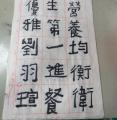 營養均衡衛
生第一進餐
優雅劉羽瑄